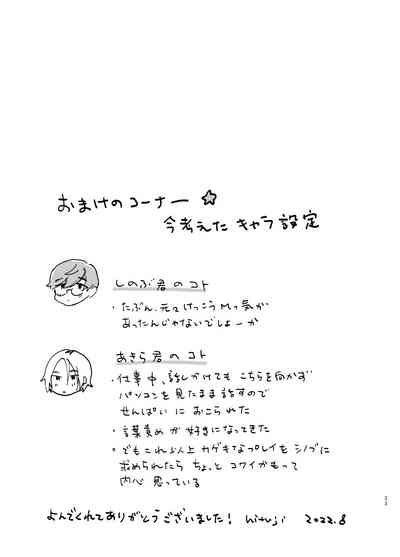 おまけのコーナー☆
今考えたキャラ設定
しのぶ君のコト
・たぶん、元々けっこうMっ気が
あったんじゃないでしょーか
あきら君のコト
・仕事中、話しかけても こちらを向かず
パソコンを見たまま話すので
せんぱいにおこられた
・言葉責めが好きになってきた
・でもこれ以上カゲキなプレイをシノブに
求められたら ちょっとコワイかもって
内心 思っている
よんでくれてありがとうございました! hituji 2022.8